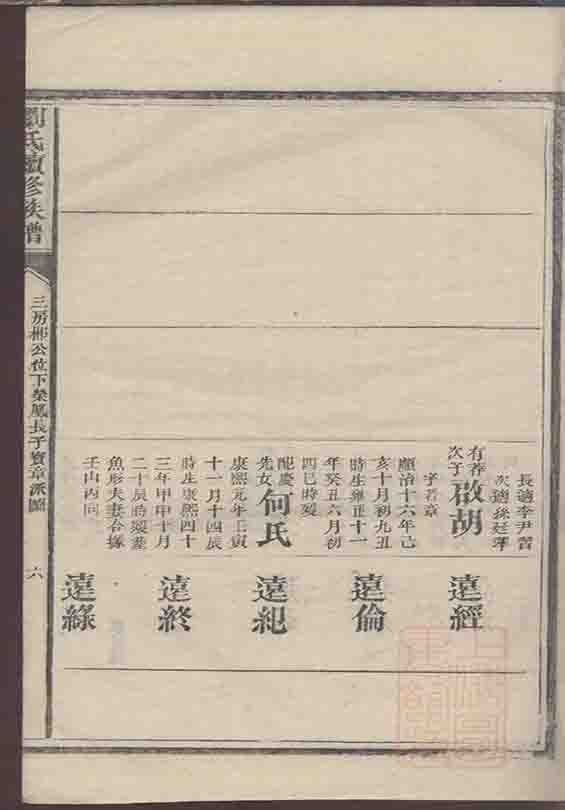 長適李尹營
次適孫廷
有存次子啟胡
字若章
順治十六年己
亥十月初九丑
時生雍正十一
年癸丑六月初
四巳時歿
配慶先女何氏
康熙元年壬寅
十一月十四辰
時生康熙四十
三年甲申十月
二十辰時歿墓
魚形夫妻合塚
壬山丙向
遠經
遠倫
遠紀
遠終
遠綠
劉氏續修族譜
三房彬公位下榮鳳長子賓章派圖
六